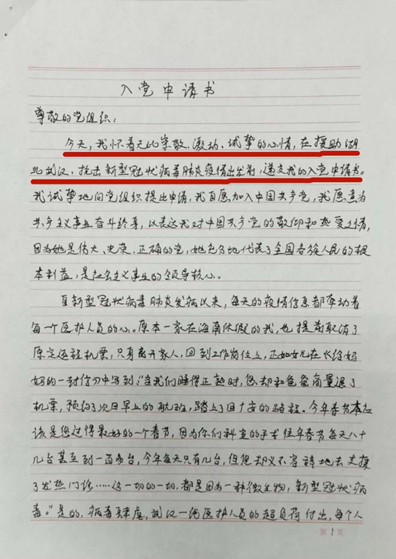 入党申请书
尊敬的党组织:
今天,我怀着无比崇敬、激动、诚挚的心情,在援助湖
北武汉、抗击新型冠状病毒肺炎疫情出发前,递交我的入党申请书。
我诚挚地向党组织提出申请,我自愿加入中国共产党,我愿意为
共产主义事业奋斗终身,以表达我对中国共产党的敬仰和热爱之情,
因为她是伟大、光荣、正确的党,她忠实地代表了全国各族人民的根
本利益,是社会主义事业的领导核心。
自新型冠状病毒肺炎发病以来,每天的疫情信息都牵动着
每一个医护人员的心。原本一家在海南休假的我,也提前取消了
原定返程机票,只有离开家人,回到工作岗位上,正如女儿在长给妈
妈的一封信中写到:“当我们睡得正香时,您却和爸爸商量退了
机票,预约了次日早上的航班,踏上了回广的路程。今年春节本应
该是您过得最好的一个春节,因为你们科室的手术往年春节每天八十
几台甚至到一百多台,今年每天只有几台,但您却义不容辞地去支援
了发热门诊……这一切的一切,都是因为一种微生物,新型冠状病
毒。”是的,病毒肆虐,武汉一线医护人员的超负荷付出,每个人
第1页